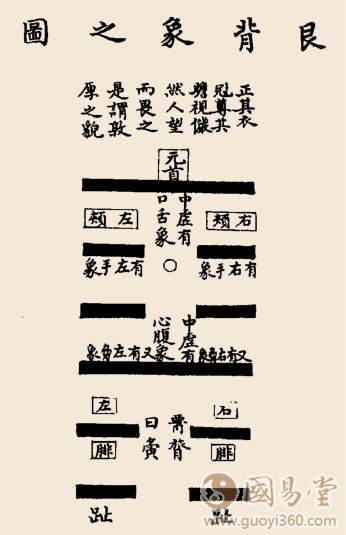 艮背象之圖
正其衣
冠尊其
瞻視儼
然人望
而畏之
是謂敦
厚之貌
元首
中虛有
口舌象
右頰
左頰
有右手象
有左手象
中虛有
心腹象
又有右象
又有左象
右
左
膂脊
曰夤
腓
腓
趾
趾
國易堂
www.guoyi360.com